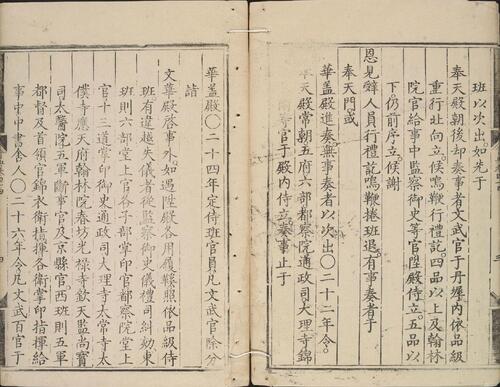 班以次出如先于
奉天殿朝後却奏事者文武官于丹墀內依品級
重行北向立候鳴鞭行禮訖四品以上及翰林
院官給事中監察御史等官陞殿侍立五品以
下仍前序立候謝
恩見辤人員行禮訖鳴鞭捲班退有事奏者于
奉天門或
華蓋殿進奏無事奏者以次出〇二十二年令
奉天殿常朝五府六部都察院通政司大理寺錦
官于殿內侍立奏事止于
華盖殿〇二十四年定侍班官員凡文武官除分
詣
文華殿啓事外如遇陞殿各用履鞋照依品級侍
班有違越失儀者從監察御史儀禮司糾劾東
班則六部堂上官各子部掌印官都察院堂上
官十三道掌印御史通政司大理寺太常寺太
僕寺應天府翰林院春坊光禄寺欽天監尚寶
司太醫院五軍斷事官及京縣官西班則五軍
都督及首領官錦衣衛指揮各衛掌印指揮給
事中中書舍人〇二十六年令凡文武百官于